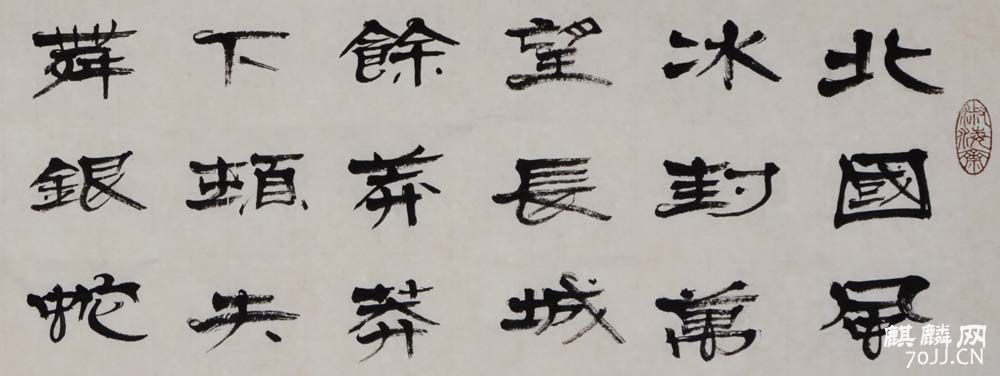 北國風
冰封萬
望長城
餘莽莽
下頓失
舞銀蛇
麒麟网
70JJ.CN